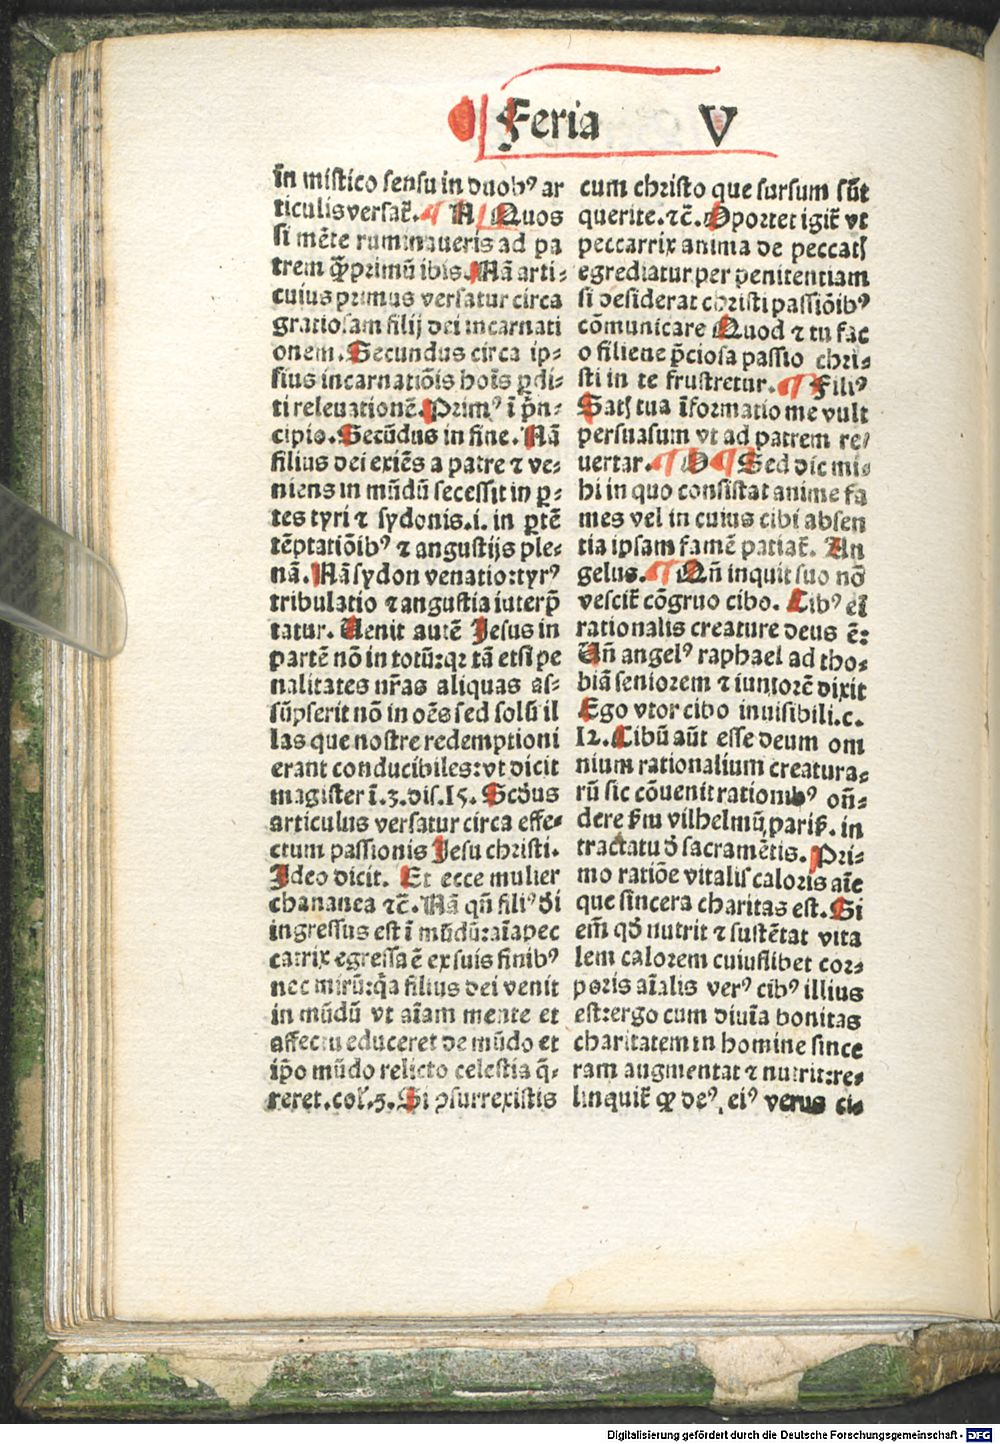 Feria V
in mistico sensu in duobꝰ ar
ticulis versat̄. A Quos
si mēte ruminaueris ad pa
trem q̄ꝫprimū ibis. Nā arti⸗
culus primus versatur circa
gratiosam filij dei incarnati
onem. Secundus circa ip⸗
sius incarnatiōis hoīs ꝑdi⸗
ti releuationē. Primꝰ ī prīn⸗
cipio. Secūdus in fine. Nā
filius dei exiēs a patre ⁊ ve⸗
niens in mūdū secessit in ꝑ⸗
tes tyri ⁊ sydonis.i. in ꝑtē
tēptatiōibꝰ ⁊ angustijs ple⸗
nā. Nā sydon venatio: tyrꝰ
tribulatio ⁊ angustia iuterp̄
tatur. Uenit autē Jesus in
partē nō in totū: qꝛ tā etsi pe
nalitates nr̄as aliquas as⸗
sūpserit nō in oēs sed solū il
las que nostre redemptioni
erant conducibiles: vt dicit
magister ī.3.dis.15. Scd̄us
articulus versatur circa effe⸗
ctum passionis Jesu christi.
Ideo dicit. Et ecce mulier
chananea ⁊c̄. Nā qn̄ filiꝰ d̄i
ingressus est ī mūdū: aīa pec
catrix egressa ē ex suis finibꝰ
nec mirū: q̄a filius dei venit
in mūdū vt aīam mente et
affectu educeret de mūdo et
ip̄o mūdo relicto celestia q̄⸗
reret. col̄.3. Si ꝯsurrexistis
cum christo que sursum sūt
querite. ⁊c̄. Oportet igit̄ vt
peccatrix anima de peccatꝭ
egrediatur per penitentiam
si desiderat christi passiōibꝰ
cōmunicare Quod ⁊ tu fac
o fili ene p̄ciosa passio chri⸗
sti in te frustretur. Filiꝰ
Satꝭ tua īformatio me vult
persuasum vt ad patrem re⸗
uertar. O Sed dic mi⸗
hi in quo consistat anime fa
mes vel in cuius cibi absen
tia ipsam famē patiat̄. An
gelus. Qn̄ inquit suo nō
vescit̄ cōgruo cibo. Cibꝰ ei
rationalis creature deus ē:
Un̄ angelꝰ raphael ad tho⸗
biā seniorem ⁊ iuniorē dixit
Ego vtor cibo inuisibili.c.
12. Cibū aūt esse deum om
nium rationalium creatura⸗
rū sic cōuenit rationibꝰ on̄⸗
dere ẜm vilhelmū parisī. in
tractatu d̄ sacramētis. Pri⸗
mo ratiōe vitalis caloris aīe
que sincera charitas est. Si
em̄ qd̄ nutrit ⁊ sustētat vita
lem calorem cuiuslibet cor⸗
poris aīalis verꝰ cibꝰ illius
est: ergo cum diuīa bonitas
charitatem in homine since
ram augmentat ⁊ nutrit: re⸗
linquit̄ ꝙ deꝰ, eiꝰ verus ci⸗
Digitalisierung gefördert durch die Deutsche Forschungsgemeinschaft - DFG